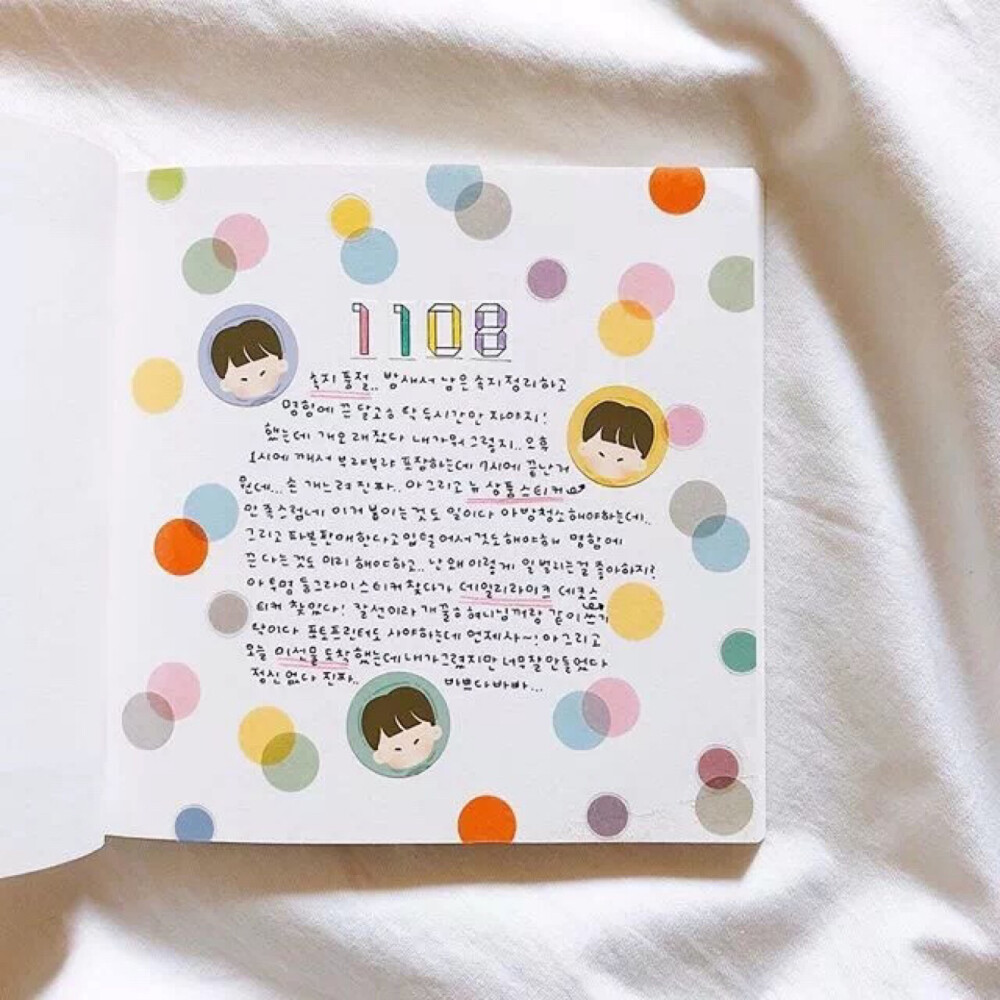 1108
속지 품절.. 밤새서 남은 속지 정리하고
명함에 끈 달고 딱 두시간만 자야지!
했는데 개오래잤다 내가 뭐 그렇지.. 오후
1시에 깨서 부랴부랴 포장하는데 7시에 끝난거
뭔데... 손 개느려 진짜.. 아 그리고 뉴 상품스티커
만족스럽네 이거 붙이는것도 일이다 아 방청소해야하는데..
그리고 파본판매한다고 입털어서 것도해야해 명함에
끈 다는것도 미리 해야하고.. 난 왜 이렇게 일 벌리는걸 좋아하지?
아 투명 동그라미스티커 찾다가 데일리라이크 데코스
티커 찾았다! 칼선이라 개꿀 허니님꺼랑 같이쓰기
딱이다 포토프린터도 사야하는데 언제사~! 아 그리고
오늘 인쇄물도착했는데 내가그렸지만 너무잘만들었다
정신없다 진짜.. 바쁘다바빠...